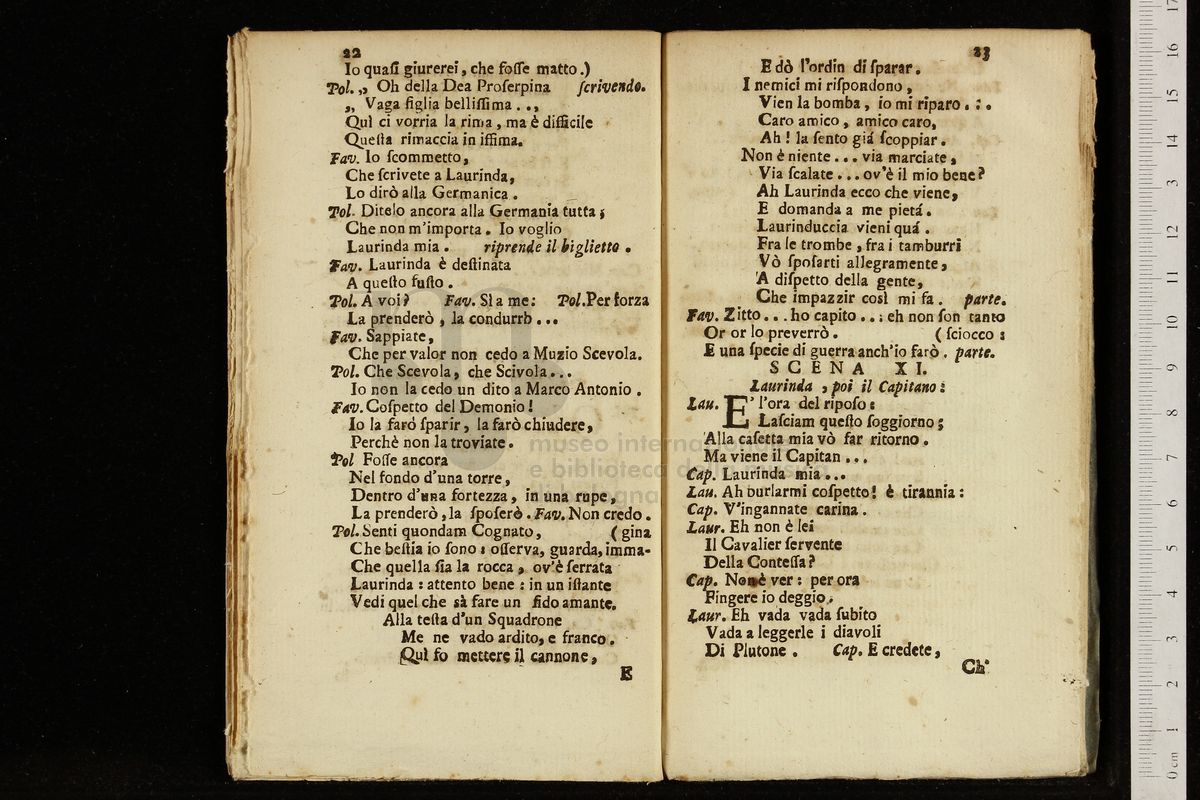 22
Io quaſi giurerei, che foſſe matto.)
Pol. „ Oh della Dea Proſerpina ſcrivendo.
„ Vaga figlia belliſſima . . ,
Quì ci vorria la rima, ma è difficile
Queſta rimaccia in iſſima.
Fav. Io ſcommetto,
Che ſcrivete a Laurinda,
Lo dirò alla Germanica.
Pol. Ditelo ancora alla Germania tutta;
Che non m'importa. Io voglio
Laurinda mia. riprende il biglietto.
Fav. Laurinda è deſtinata
A queſto fuſto.
Pol. A voi? Fav. Sì a me: Pol. Per forza
La prenderò, la condurrò...
Fav. Sappiate,
Che per valor non cedo a Muzio Scevola.
Pol. Che Scevola, che Scivola...
Io non la cedo un dito a Marco Antonio.
Fav. Coſpetto del Demonio!
Io la farò ſparir, la farò chiudere,
Perchè non la troviate.
Pol Foſſe ancora
Nel fondo d'una torre,
Dentro d'una fortezza, in una rupe,
La prenderò, la ſpoſerò. Fav. Non credo.
Pol. Senti quondam Cognato, (gina
Che beſtia io ſono: oſſerva, guarda, imma-
Che quella ſia la rocca, ov'è ſerrata
Laurinda: attento bene: in un iſtante
Vedi quel che sà fare un fido amante.
Alla teſta d'un Squadrone
Me ne vado ardito, e franco.
Quì fo mettere il cannone,
E
23
E dò l'ordin di ſparar.
I nemici mi riſpondono,
Vien la bomba, io mi riparo. : .
Caro amico, amico caro,
Ah! la ſento giá ſcoppiar.
Non è niente... via marciate,
Via ſcalate... ov'è il mio bene?
Ah Laurinda ecco che viene,
E domanda a me pietá.
Laurinduccia vieni quá.
Fra le trombe, fra i tamburri
Vò ſpoſarti allegramente,
A diſpetto della gente,
Che impazzir così mi fa. parte.
Fav. Zitto... ho capito..: eh non ſon tanto
Or or lo preverrò. (ſciocco:
E una ſpecie di guerra anch'io farò. parte.
SCENA XI.
Laurinda, poi il Capitano:
Lau. E' l'ora del ripoſo:
Laſciam queſto ſoggiorno;
Alla caſetta mia vò far ritorno.
Ma viene il Capitan...
Cap. Laurinda mia...
Lau. Ah burlarmi coſpetto! è tirannia:
Cap. V'ingannate carina.
Laur. Eh non è lei
Il Cavalier ſervente
Della Conteſſa?
Cap. Non è ver: per ora
Fingere io deggio.
Laur. Eh vada vada ſubito
Vada a leggerle i diavoli
Di Plutone. Cap. E credete,
Ch'
museo internazionale
e biblioteca della musica
di bologna